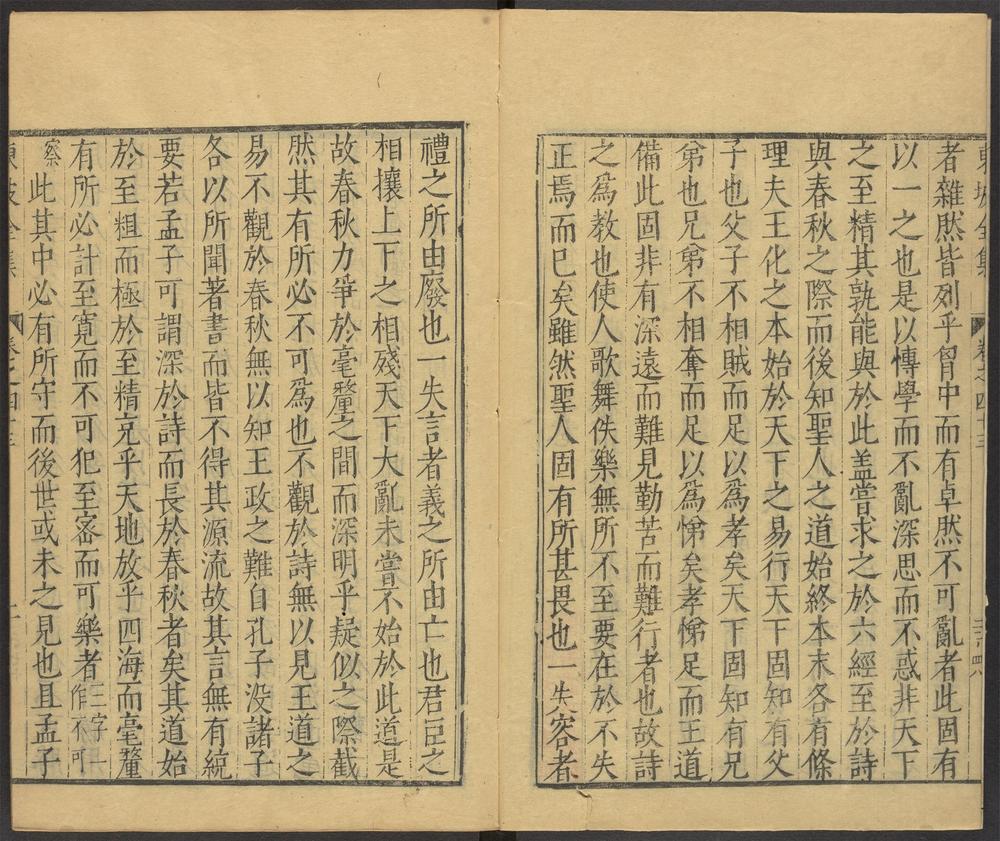 東坡全集 卷之四十三
者雜然皆列乎胷中而有卓然不可亂者此固有
以一之也是以慱學而不亂深思而不惑非天下
之至精其孰能與於此盖嘗求之於六經至於詩
與春秋之際而後知聖人之道始終本末各有條
理夫王化之本始於天下之易行天下固知有父
子也父子不相賊而足以爲孝矣天下固知有兄
弟也兄弟不相奪而足以爲悌矣孝悌足而王道
備此固非有深遠而難見勤苦而難行者也故詩
之爲教也使人歌舞佚樂無所不至要在於不失
正焉而已矣雖然聖人固有所甚畏也一失容者
禮之所由廢也一失言者義之所由亡也君臣之
相攘上下之相殘天下大亂未嘗不始於此道是
故春秋力爭於毫釐之間而深明乎疑似之際截
然其有所必不可爲也不觀於詩無以見王道之
易不觀於春秋無以知王政之難自孔子没諸子
各以所聞著書而皆不得其源流故其言無有統
要若孟子可謂深於詩而長於春秋者矣其道始
於至粗而極於至精充乎天地放乎四海而毫釐
有所必計至寛而不可犯至宻而可樂者二字一作不可
察此其中必有所守而後世或未之見也且孟子